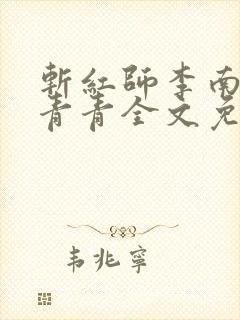 斬紅師李南
青青全文免
韦兆寧